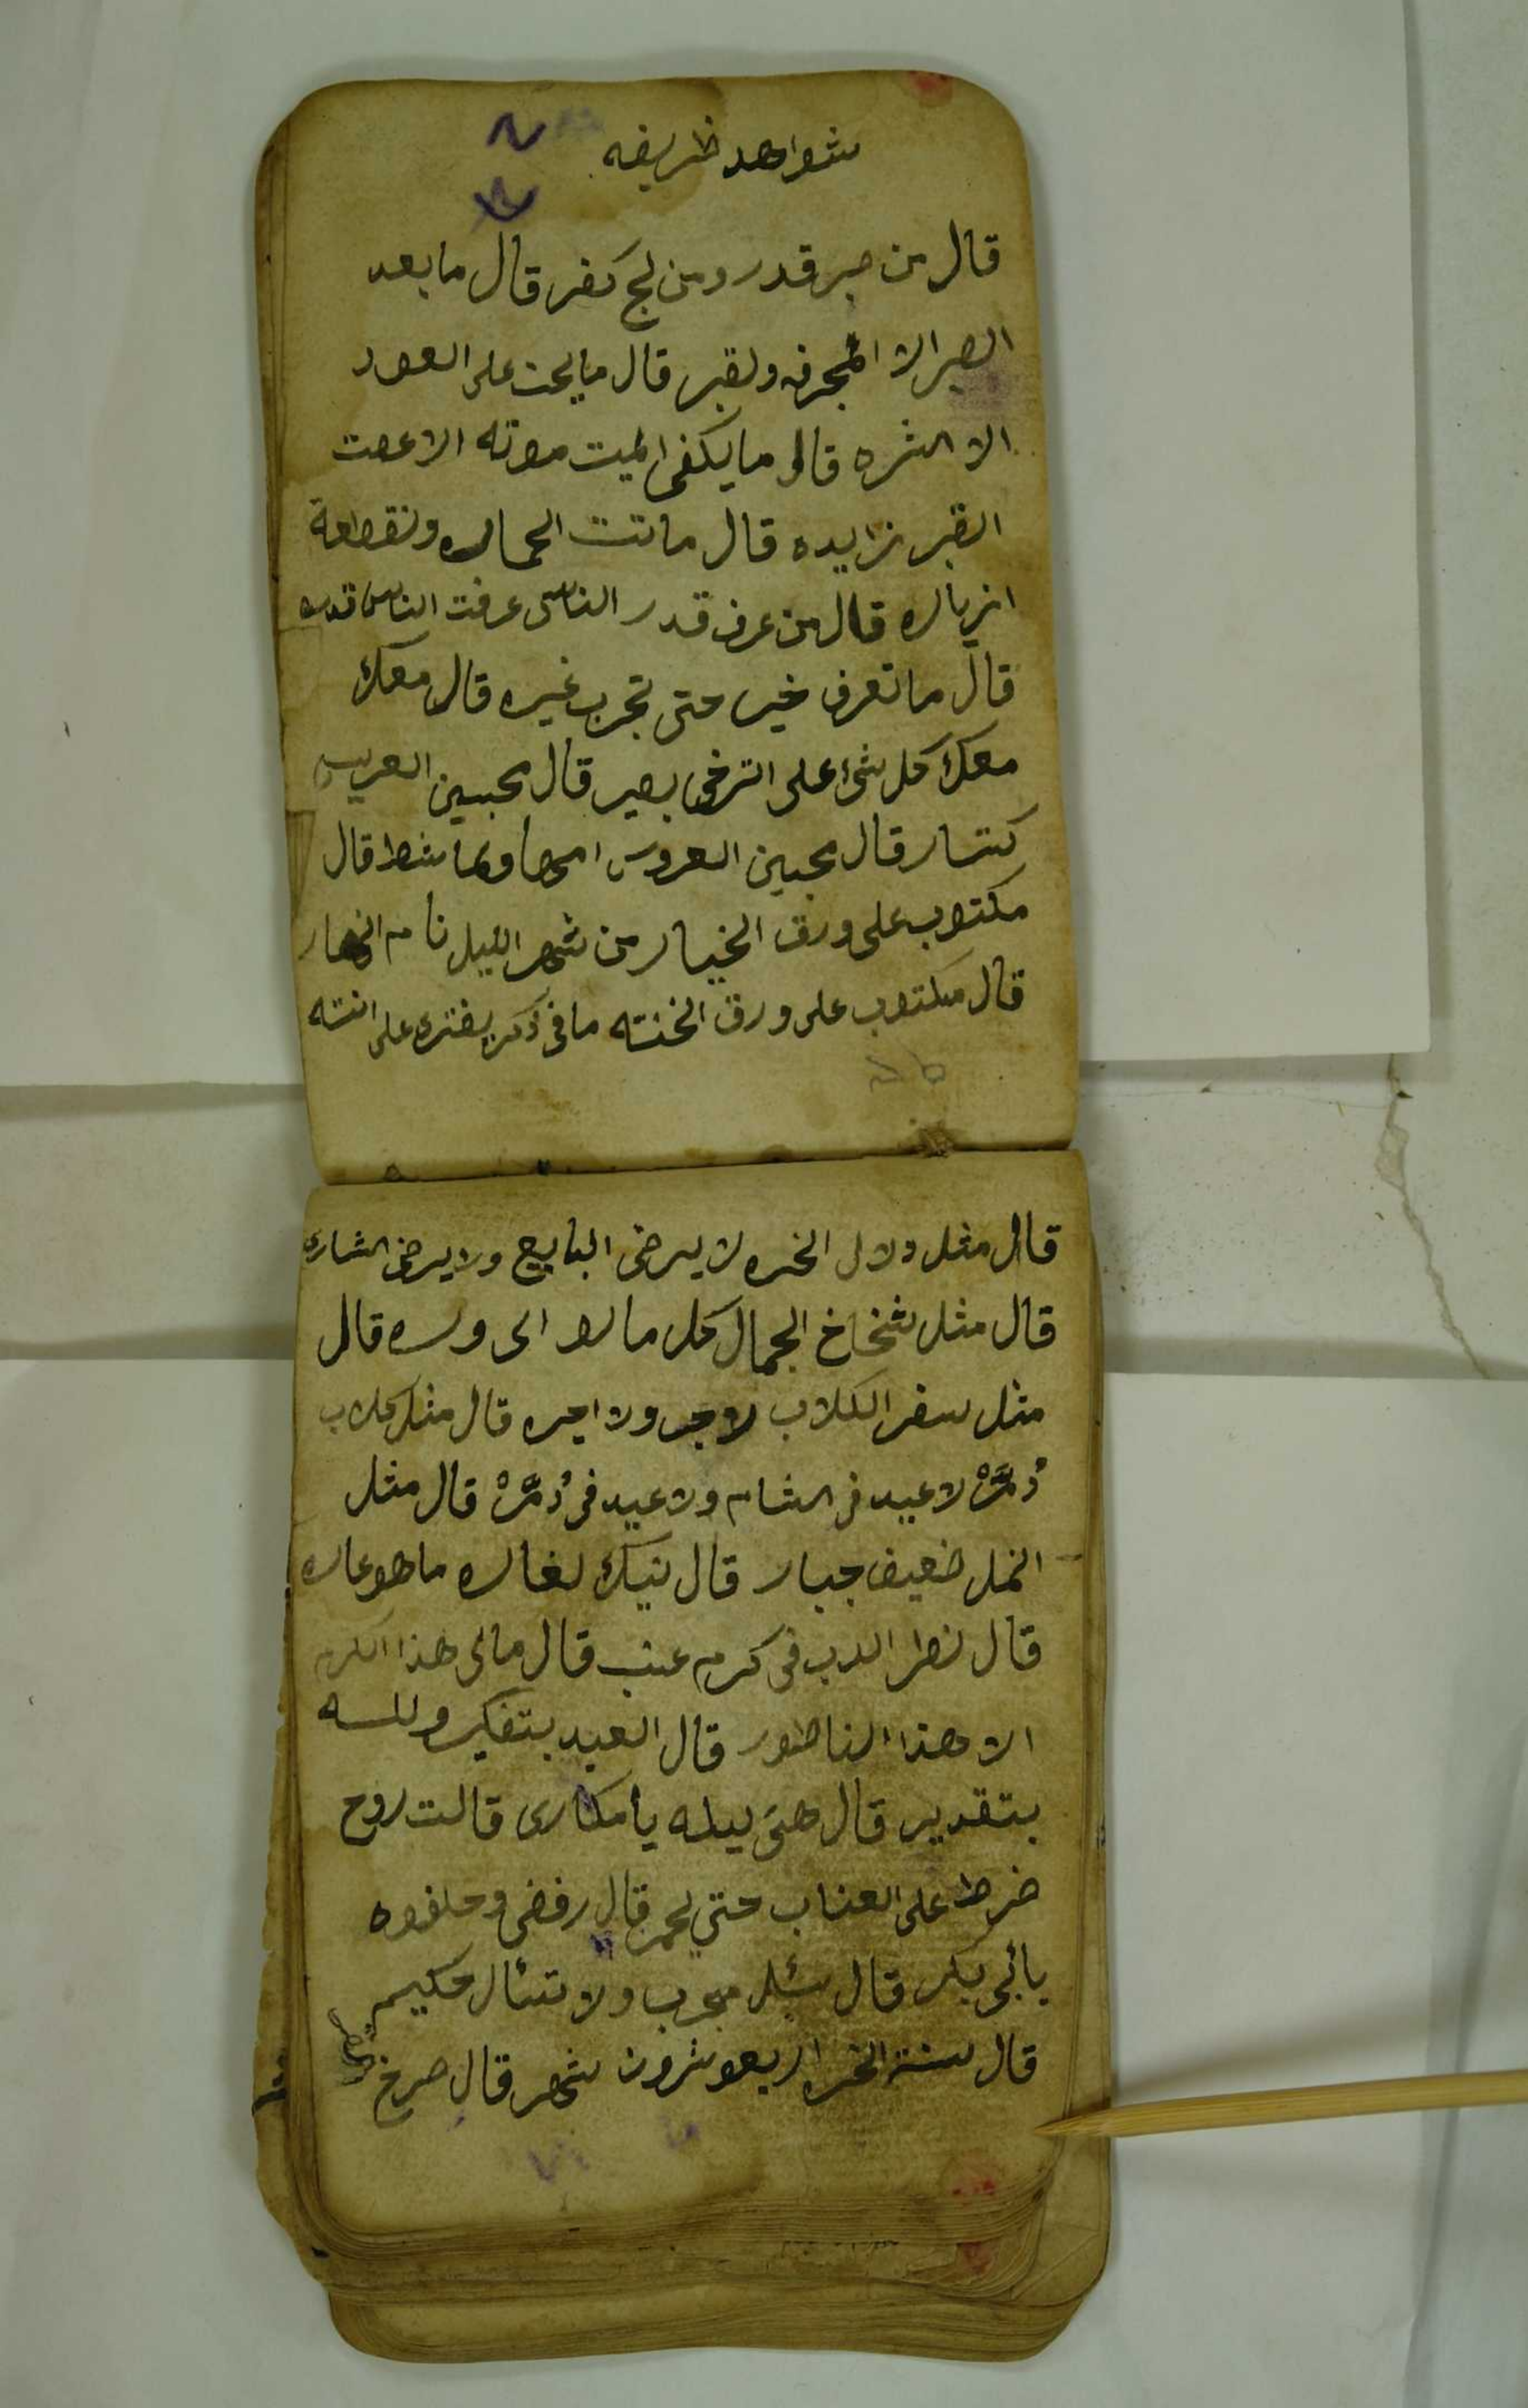 شواهد ظريفه
قال من صبر قدر ومن لج كفر قال ما بعد
الصبر الا المجرفه والقبر قال ما يحن على العود
الا القشره قال ما يكفى الميت موته الا عصت
القبر نزايده قال ماتت الحماره ونقطعة
الزياره قال من عرف قدر الناس عرفت الناس قدره
قال ما تعرف خيره حتى تجرب غيره قال معك
معك كل شئ على الترخى بصير قال محبين العريس
كتار قال محبين العروس امها وماشطا قال
مكتوب على ورق الخيار من شهر الليل نام النهار
قال مكتوب على ورق الخنته ما فى ذكر يفترى على انته
قال مثل دلال الخره لا يرضى البايع ولا يرضى الشارى
قال مثل شخاخ الجمال كل مالو الى وره قال
مثل سفر الكلاب لا جر ولا اجره قال مثل كلاب
دُمَّرْ لا عيد فى الشام ولا عيد فى دُمَّرْ قال مثل
النمل ضعيف جبار قال نيك لغاره ما هو عاره
قال نطر الدب فى كرم عنب قال مالى هذا الكرم
الا هذا الناطور قال العبد بتفكير ولله
بتقدير قال هتى ليله يا مكارى قالت روح
ضرط على العناب حتى يحمر قال رفضى وحلفوه
بأبى بكر قال سئل مجرب ولا تسأل حكيم
قال سنة الخره اربعوشرون شهر قال صرخ